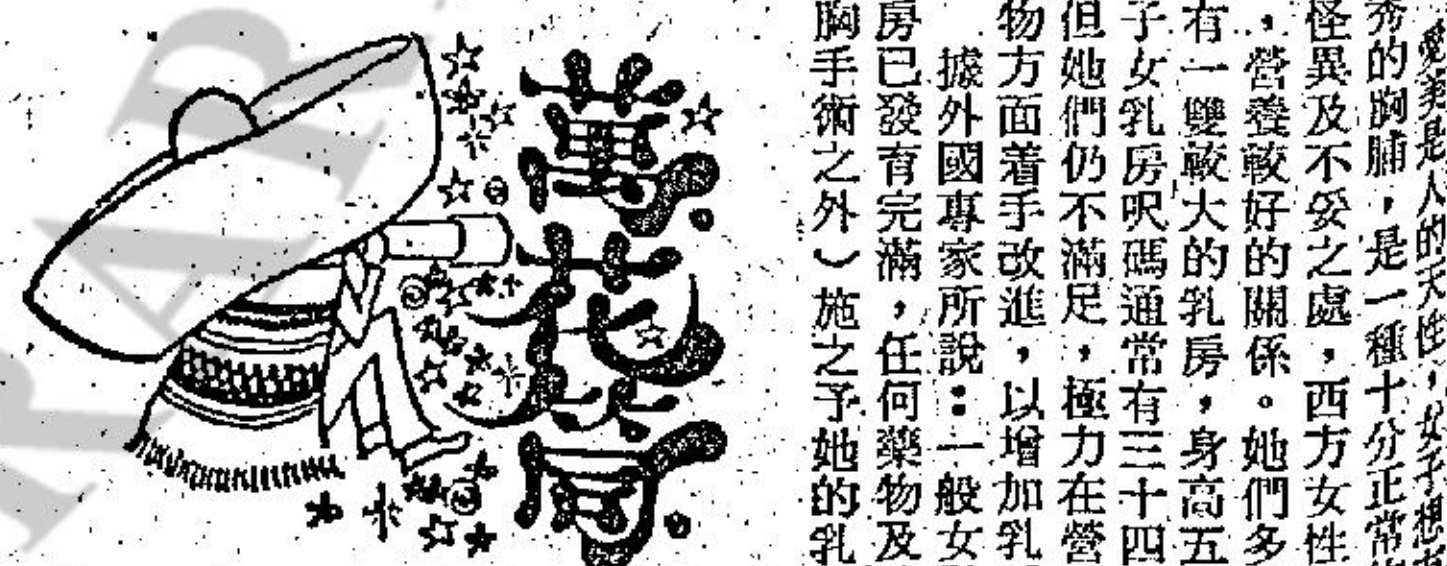 愛美是人的天性，女子想
秀的胸脯，是一種十分正常
怪異及不妥之處，西方女性
，營養較好的關係。她們多
有一雙較大的乳房，身高五
子女乳房呎碼通常有三十四
但她們仍不滿足，極力在營
物方面着手改進，以增加乳
據外國專家所說：一般女
房已發有完滿，任何藥物及
胸手術之外）施之予她的乳
萬花筒